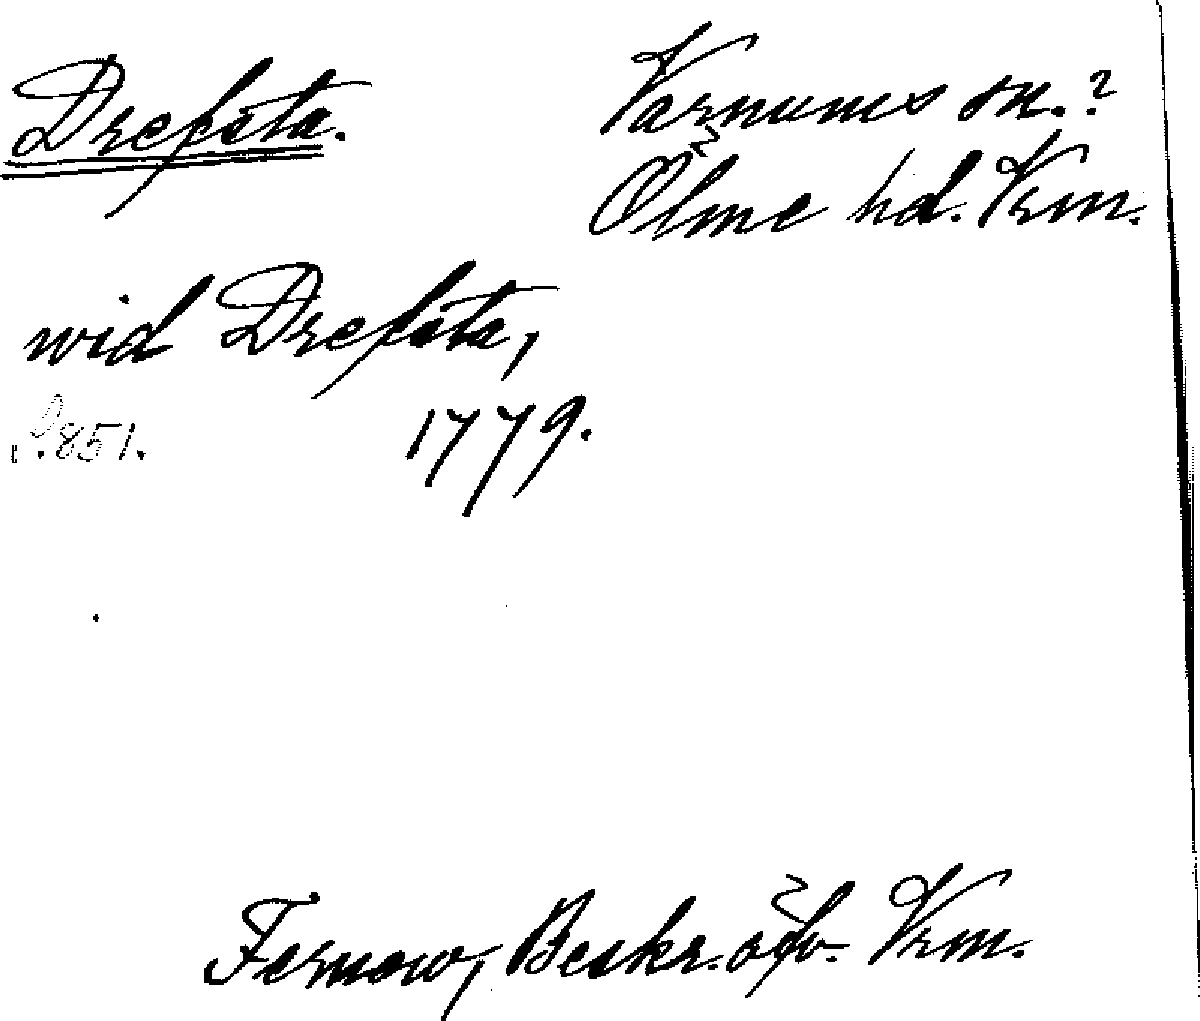 Drefsta.
Varnums sn.?
Ölme hd. Vrm.
wid Drefsta,
S. 851.
1779.
Fernow, Beskr. öfv. Vrm.